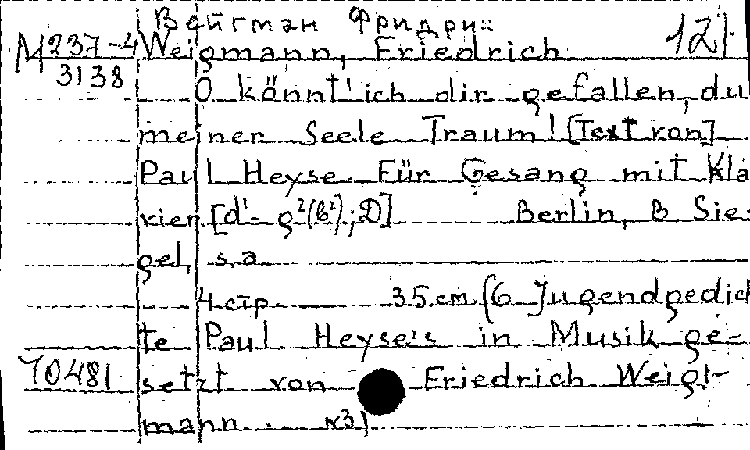 Вейгман Фридрих 121
М237-4 Weigmann, Friedrich
3138
O kännt' ich dir gefallen, du
meiner Seele Traum! [Text von]
Paul Heyse. Für Gesang mit Kla
vier. [d'-g²(b²); D] Berlin, B Sie-
gel, s.a.
4 стр. 35 cm (6 Jugendgedich
te Paul Heyse's in Musik ge-
70481 setzt von Friedrich Weig-
mann. №3)